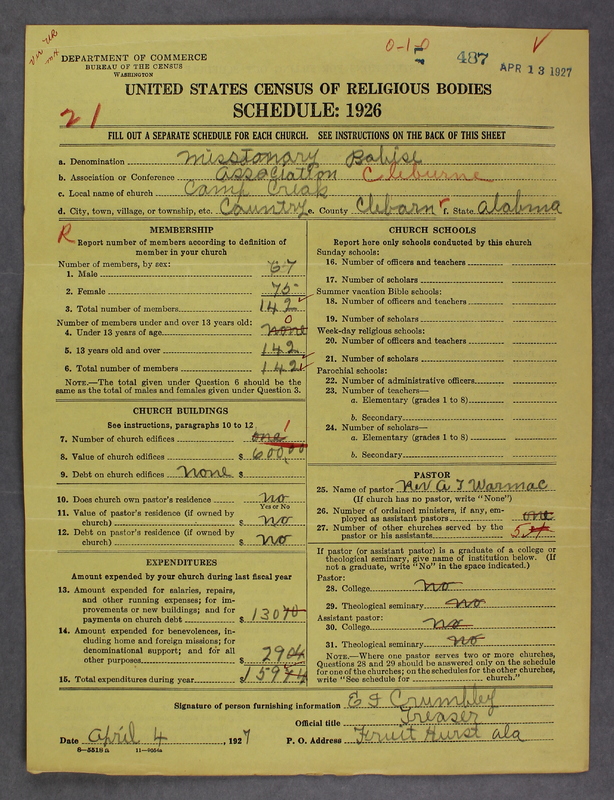 Vir UR
0-1-0
487
APR 13 1927
DEPARTMENT OF COMMERCE
BUREAU OF THE CENSUS
WASHINGTON
UNITED STATES CENSUS OF RELIGIOUS BODIES
SCHEDULE: 1926
21
FILL OUT A SEPARATE SCHEDULE FOR EACH CHURCH. SEE INSTRUCTIONS ON THE BACK OF THIS SHEET
a. Denomination Misstonary Babise
b. Association or Conference Association Cleburne
c. Local name of church Camp Creak
d. City, town, village, or township, etc. Country e. County Clebarn r f. State Alabma
R
MEMBERSHIP
Report number of members according to definition of
member in your church
Number of members, by sex:
1. Male 67
2. Female 75
3. Total number of members 142
Number of members under and over 13 years old:
4. Under 13 years of age none 0
5. 13 years old and over 142
6. Total number of members 142
NOTE.—The total given under Question 6 should be the
same as the total of males and females given under Question 3.
CHURCH BUILDINGS
See instructions, paragraphs 10 to 12
7. Number of church edifices one 1
8. Value of church edifices $ 600,00
9. Debt on church edifices none $
10. Does church own pastor's residence no
Yes or No
11. Value of pastor's residence (if owned by
church) $ no
12. Debt on pastor's residence (if owned by
church) $ no
EXPENDITURES
Amount expended by your church during last fiscal year
13. Amount expended for salaries, repairs,
and other running expenses; for im-
provements or new buildings; and for
payments on church debt $ 13040
14. Amount expended for benevolences, in-
cluding home and foreign missions; for
denominational support; and for all
other purposes $ 2904
15. Total expenditures during year $ 15944
CHURCH SCHOOLS
Report here only schools conducted by this church
Sunday schools:
16. Number of officers and teachers
17. Number of scholars
Summer vacation Bible schools:
18. Number of officers and teachers
19. Number of scholars
Week-day religious schools:
20. Number of officers and teachers
21. Number of scholars
Parochial schools:
22. Number of administrative officers
23. Number of teachers—
a. Elementary (grades 1 to 8)
b. Secondary
24. Number of scholars—
a. Elementary (grades 1 to 8)
b. Secondary
PASTOR
25. Name of pastor Rev A. T Warmac
(If church has no pastor, write "None")
26. Number of ordained ministers, if any, em-
ployed as assistant pastors one
27. Number of other churches served by the
pastor or his assistants 5
If pastor (or assistant pastor) is a graduate of a college or
theological seminary, give name of institution below. (If
not a graduate, write "No" in the space indicated.)
Pastor:
28. College no
29. Theological seminary no
Assistant pastor:
30. College no
31. Theological seminary no
NOTE.—Where one pastor serves two or more churches,
Questions 28 and 29 should be answered only on the schedule
for one of the churches; on the schedules for the other churches,
write "See schedule for church."
Signature of person furnishing information E F Crumbley
Official title Treaser
Date April 4, 1927 P. O. Address Fruit Hurst ala
8-5518a 11-9064a